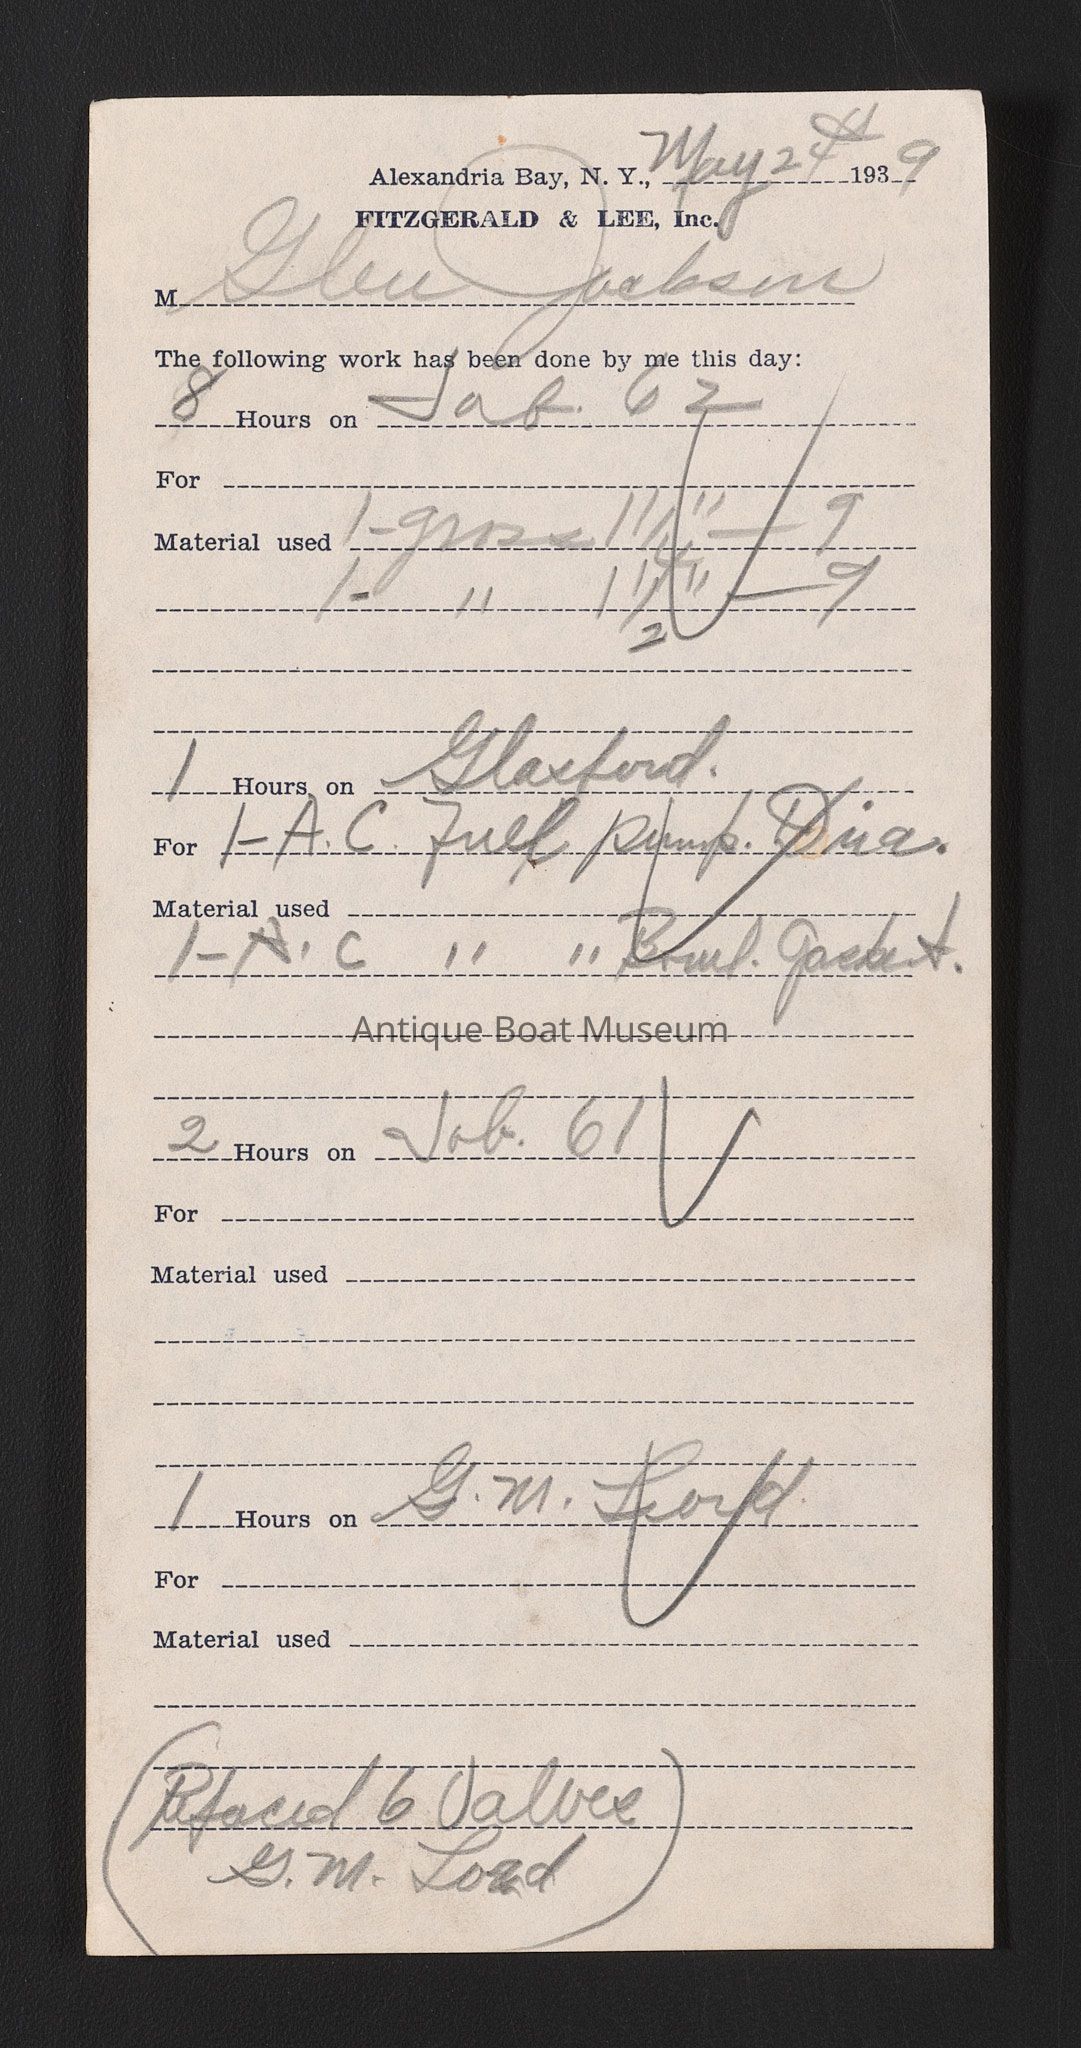 Alexandria Bay, N. Y., May 24th 1939
FITZGERALD & LEE, Inc.
M Glen Jackson
The following work has been done by me this day:
8 Hours on Job. 62
For
Material used 1-gross 1 1/4" — 9
1- " 1 1/2" — 9
1 Hours on Glasford.
For 1-A.C. Fuel pump. Dia.
Material used
1-A.C " " Bowl. Gasket.
Antique Boat Museum
2 Hours on Job. 61
For
Material used
1 Hours on G.M. Lord
For
Material used
(Refaced 6 Valves
G.M. Lord)